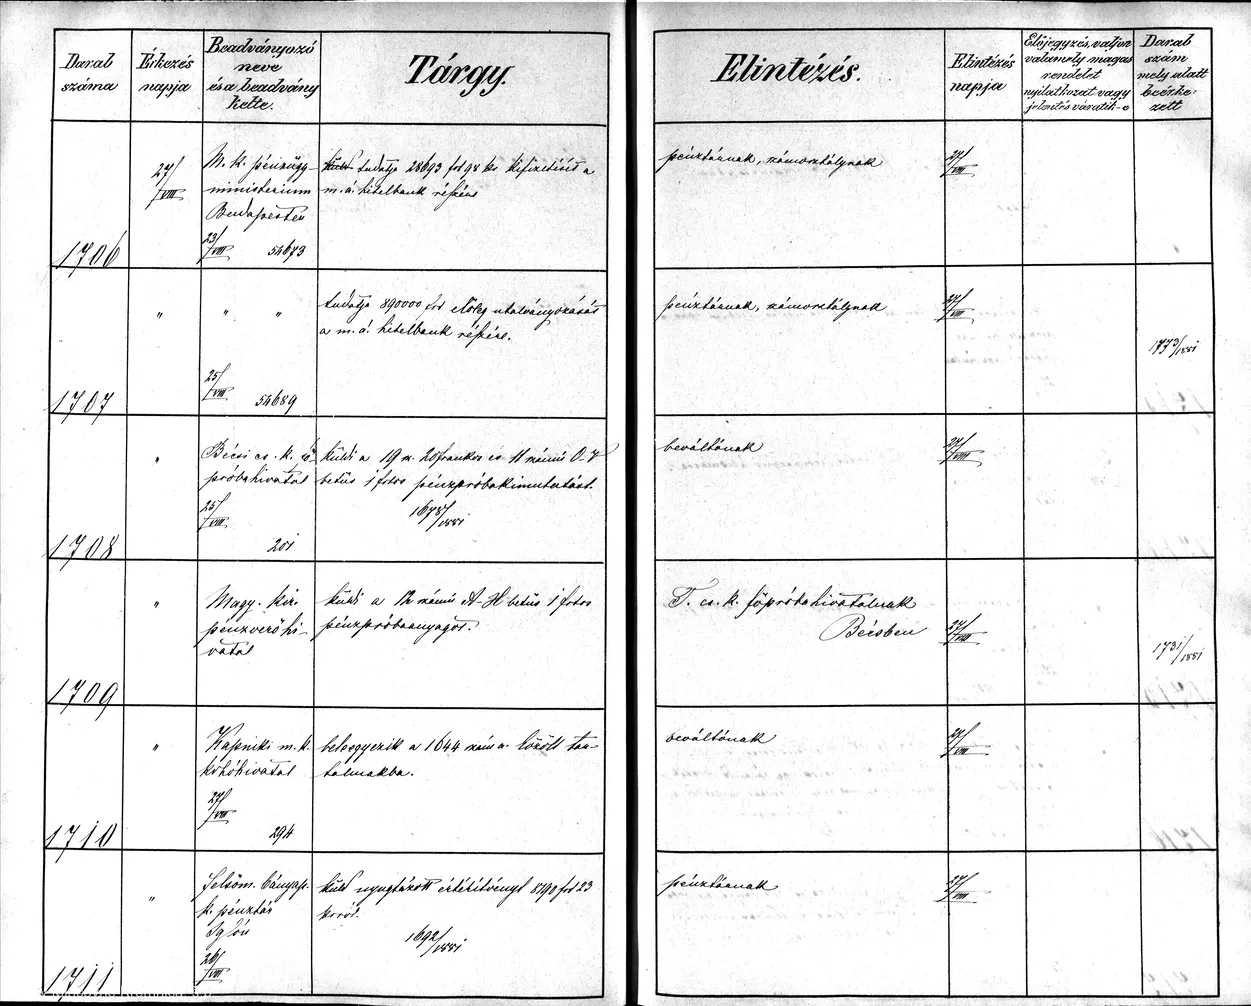 Darab száma
Érkezés napja
Beadványozó neve és a beadvány kelte.
Tárgy.
Elintézés.
Elintézés napja
Előjegyzés, valjon valamely magas rendelet nyilatkozat vagy jelentés váratik-e
Darab szám mely alatt beérkezett
1706
27/VIII
M. k. pénzügy-
ministerium
Budapesten
23/VIII 54673
tudatja 28693 frt 98 kr kifizetését a
m. á. hitelbank részére
pénztárnak, számosztálynak
27/VIII
1707
" " "
25/VIII 54689
tudatja 890000 frt utalványozását
a m. á. hitelbank részére.
pénztárnak, számosztálynak
27/VIII
1773/1881
1708
"
Bécsi cs. k. fő-
próbahivatal
25/VIII
201
küldi a 19 20frankos és 11 számú
betüs 1 frtos pénzpróbakimutatást.
1678/1881
beváltónak
27/VIII
1709
"
Magy. kir.
pénzverő hi-
vatal
küldi a 12 számú A-H betüs 1 frtos
pénzpróbaanyagot.
T. cs. k. főpróbahivatalnak
Bécsben
27/VIII
1731/1881
1710
"
Kapniki m. k.
kohóhivatal
27/VIII
294
beleegyezik a 1644 szám a. közölt tar-
talmakba.
beváltónak
27/VIII
1711
"
Felsőm. bányaig.
k. pénztár
Iglón
26/VIII
küld nyugtázott értesítvényt 8790 frt 23
krról.
1692/1881
pénztárnak
27/VIII